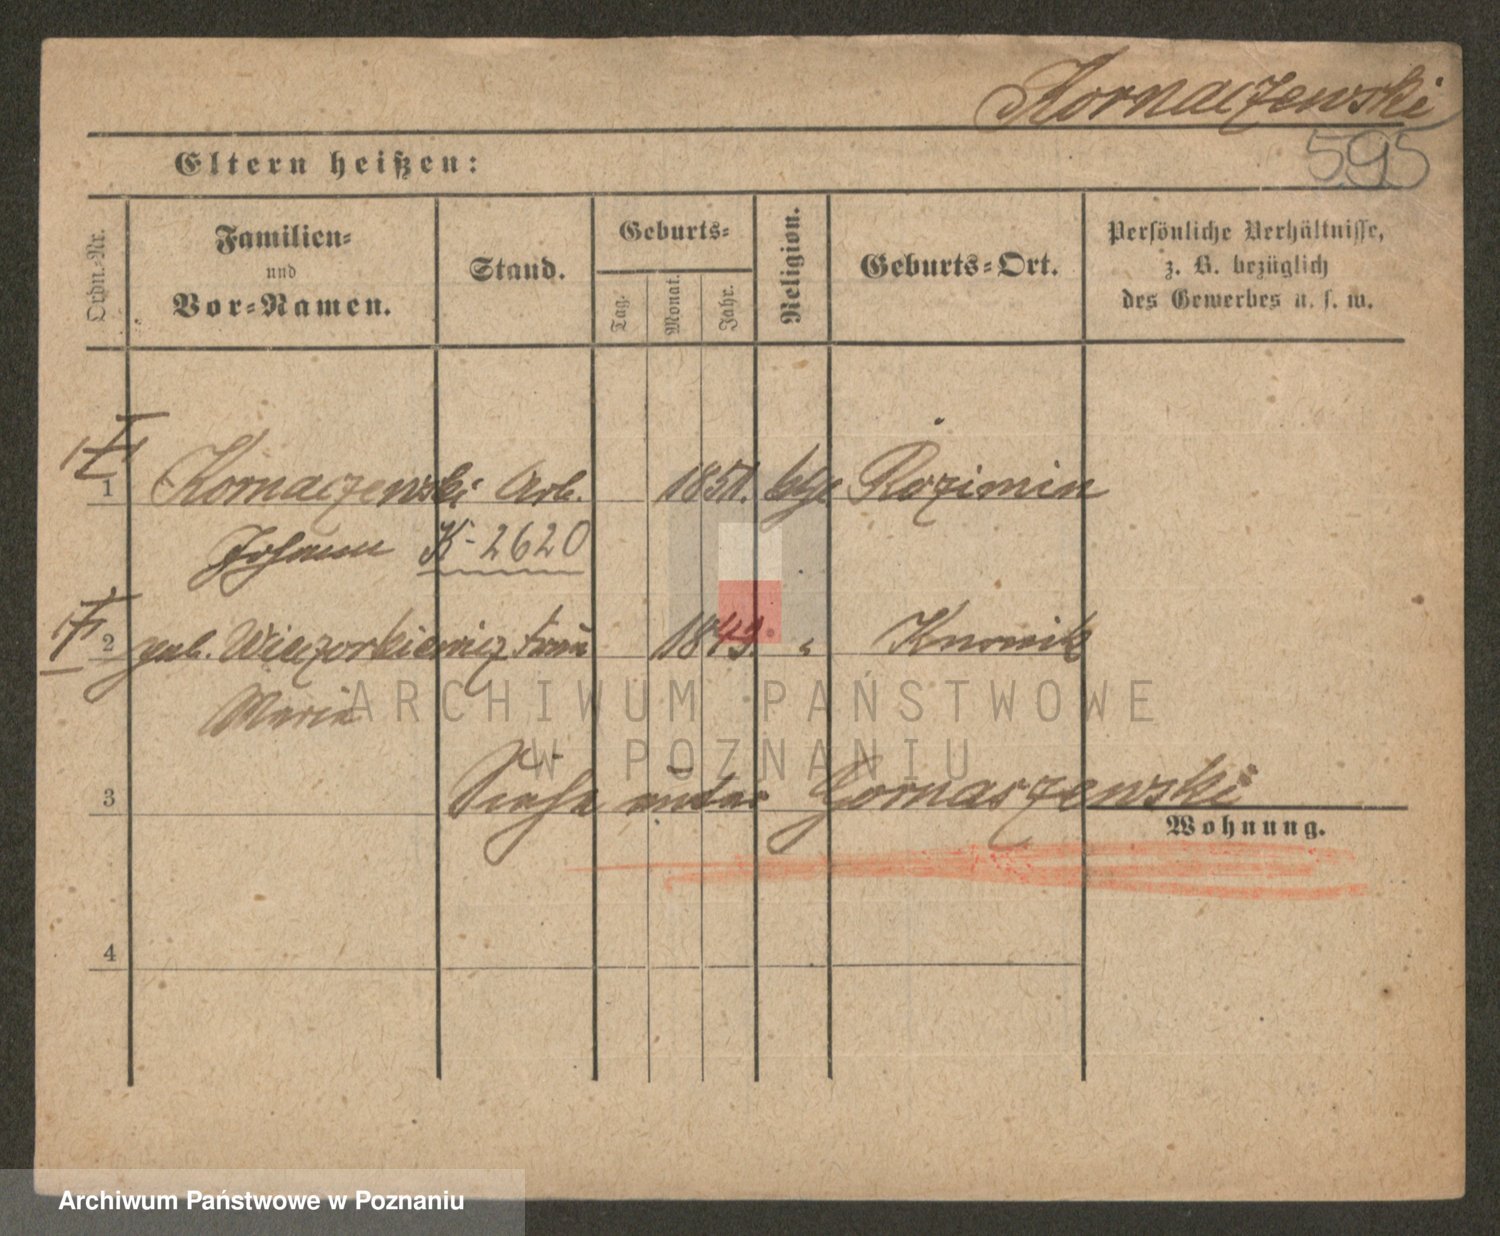 Kornaczewski
595
Eltern heißen:
Ordn.-Nr.
Familien-
und
Vor-Namen.
Stand.
Geburts-
Tag.
Monat.
Jahr.
Religion.
Geburts-Ort.
Persönliche Verhältnisse,
z. B. bezüglich
des Gewerbes u. s. w.
1 Kornaczewski Arb. 1851. kth. Rozimin
Johann K-2620
2 geb. Wieczorkiewicz Frau 1843. "
Maria
ARCHIWUM PAŃSTWOWE
W POZNANIU
3 Siehe unter Gornaszewski
Wohnung.
4
Archiwum Państwowe w Poznaniu